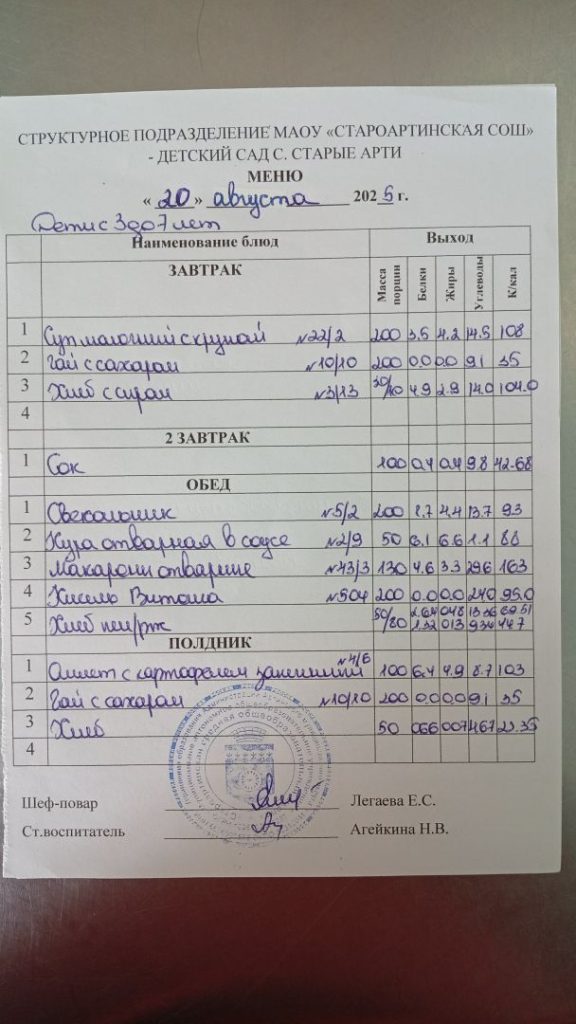 СТРУКТУРНОЕ ПОДРАЗДЕЛЕНИЕ МАОУ «СТАРОАРТИНСКАЯ СОШ»
- ДЕТСКИЙ САД С. СТАРЫЕ АРТИ
МЕНЮ
« 20 » августа 2025 г.
Дети с 3 до 7 лет
Наименование блюд Выход
ЗАВТРАК Масса порции Белки Жиры Углеводы К/кал
1 Суп молочный с крупой №22/2 200 3.5 4.2 14.5 108
2 Чай с сахаром №10/10 200 0.0 0.0 9.1 35
3 Хлеб с сыром №3/13 30/10 4.9 2.9 14.0 104.0
4
2 ЗАВТРАК
1 Сок 100 0.4 0.4 9.8 42.68
ОБЕД
1 Свекольник №5/2 200 1.7 4.4 13.7 93
2 Кура отварная в соусе №2/9 50 8.1 6.6 1.1 88
3 Макароны отварные №43/3 130 4.6 3.3 29.6 163
4 Кисель Витоша №504 200 0.0 0.0 24.0 95.0
5 Хлеб пш/рж 50/80
ПОЛДНИК
1 Омлет с картофелем запеченный №4/6 100 6.4 4.9 8.7 103
2 Чай с сахаром №10/10 200 0.0 0.0 9.1 35
3 Хлеб 50 066 007 467 23.35
4
Шеф-повар Легаева Е.С.
Ст.воспитатель Агейкина Н.В.